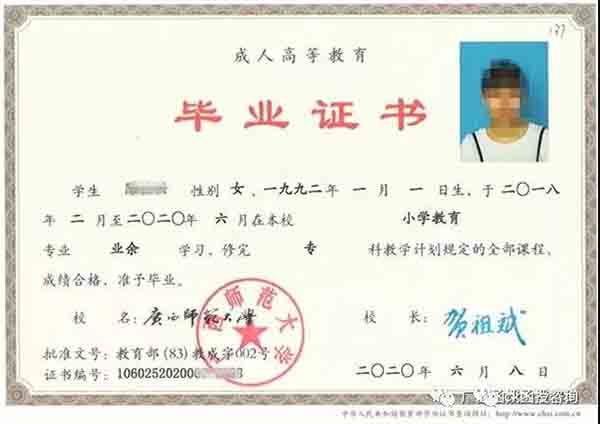 137
成人高等教育
毕业证书
学生 性别 女、一九九二年 一 月 一 日生、于二〇一八
年 二 月至二〇二〇年 六 月在本校 小学教育
专业 业余 学习、修完 专 科教学计划规定的全部课程、
成绩合格、准予毕业。
校 名：广西师范大学 校 长：贺祖斌
广西师范大学
批准文号：教育部(83)教成字002号
证书编号：10602520200 二〇二〇年 六 月 八 日
中华人民共和国教育部学历证书查询网址：http://www.chsi.com.cn